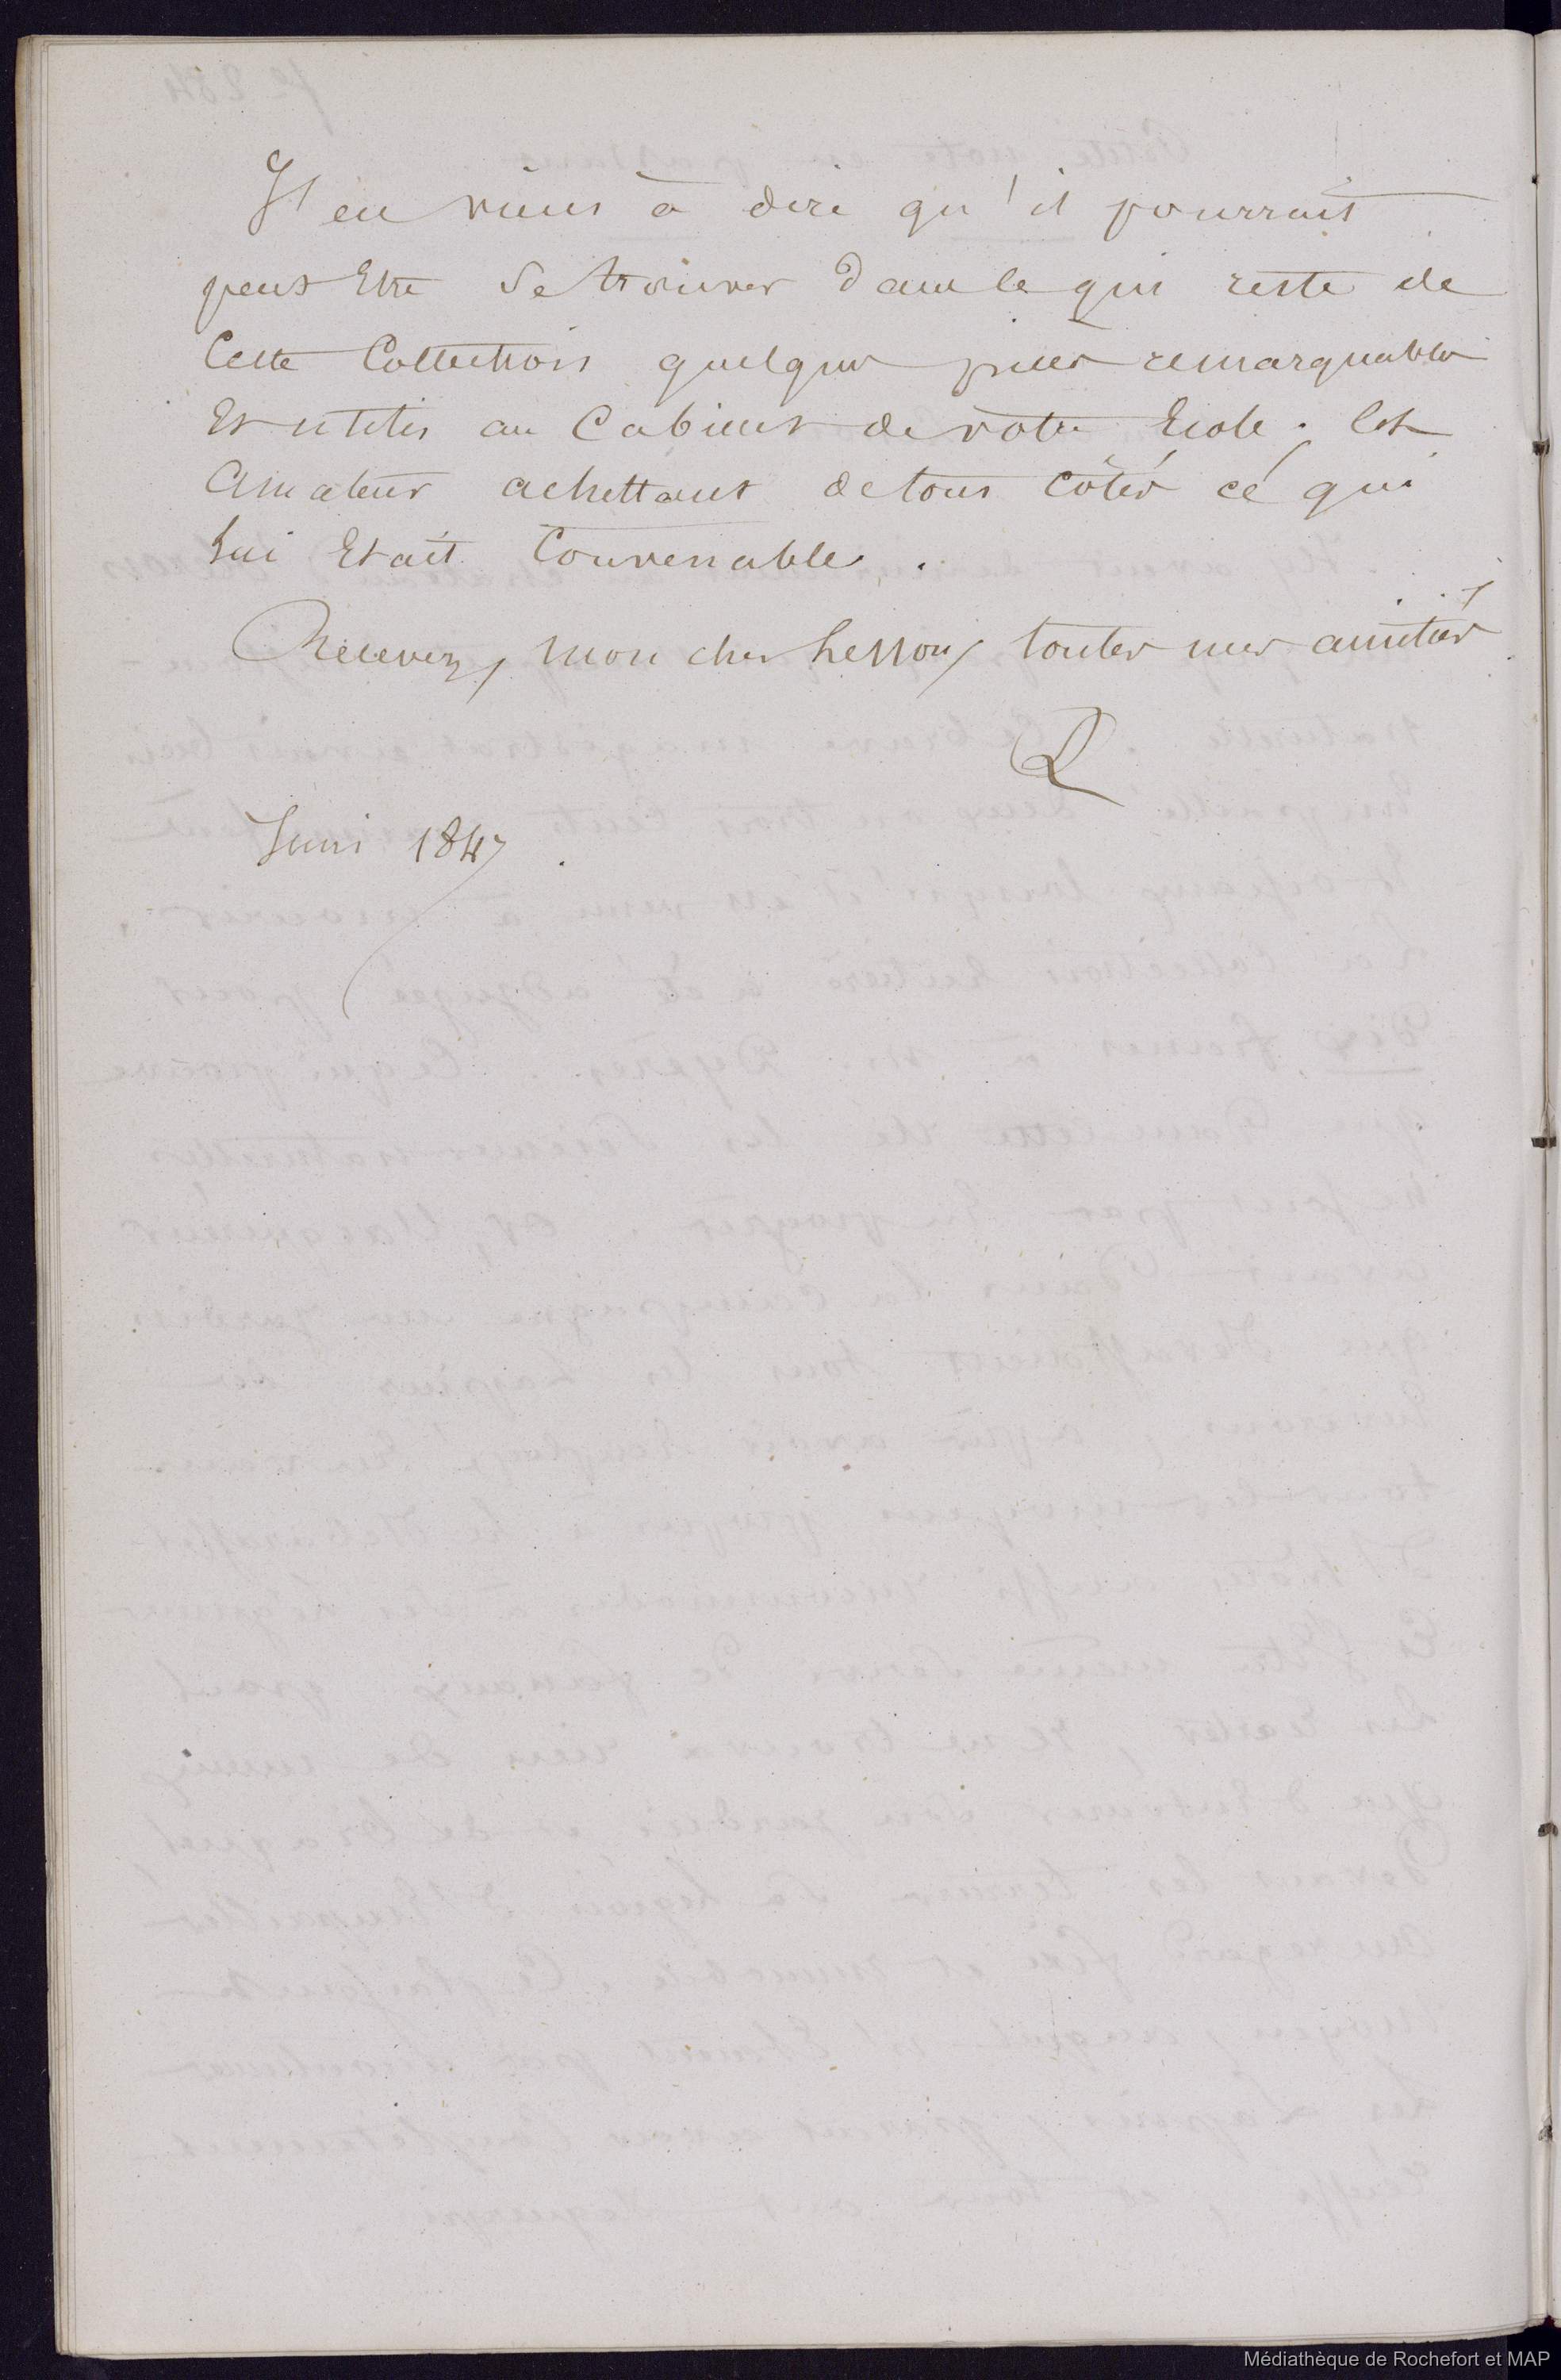 J'en viens à dire qu'il pourrait
peut Etre se trouver dans ce qui reste de
Cette Collection quelques pièces remarquables
Et utiles au Cabinet de votre Ecole. Cet
Amateur achettant de tous côtés ce qui
lui Etait Convenable.
Recevez, mon cher Lesson, toutes mes amitiés
Juin 1847
Médiathèque de Rochefort et MAP